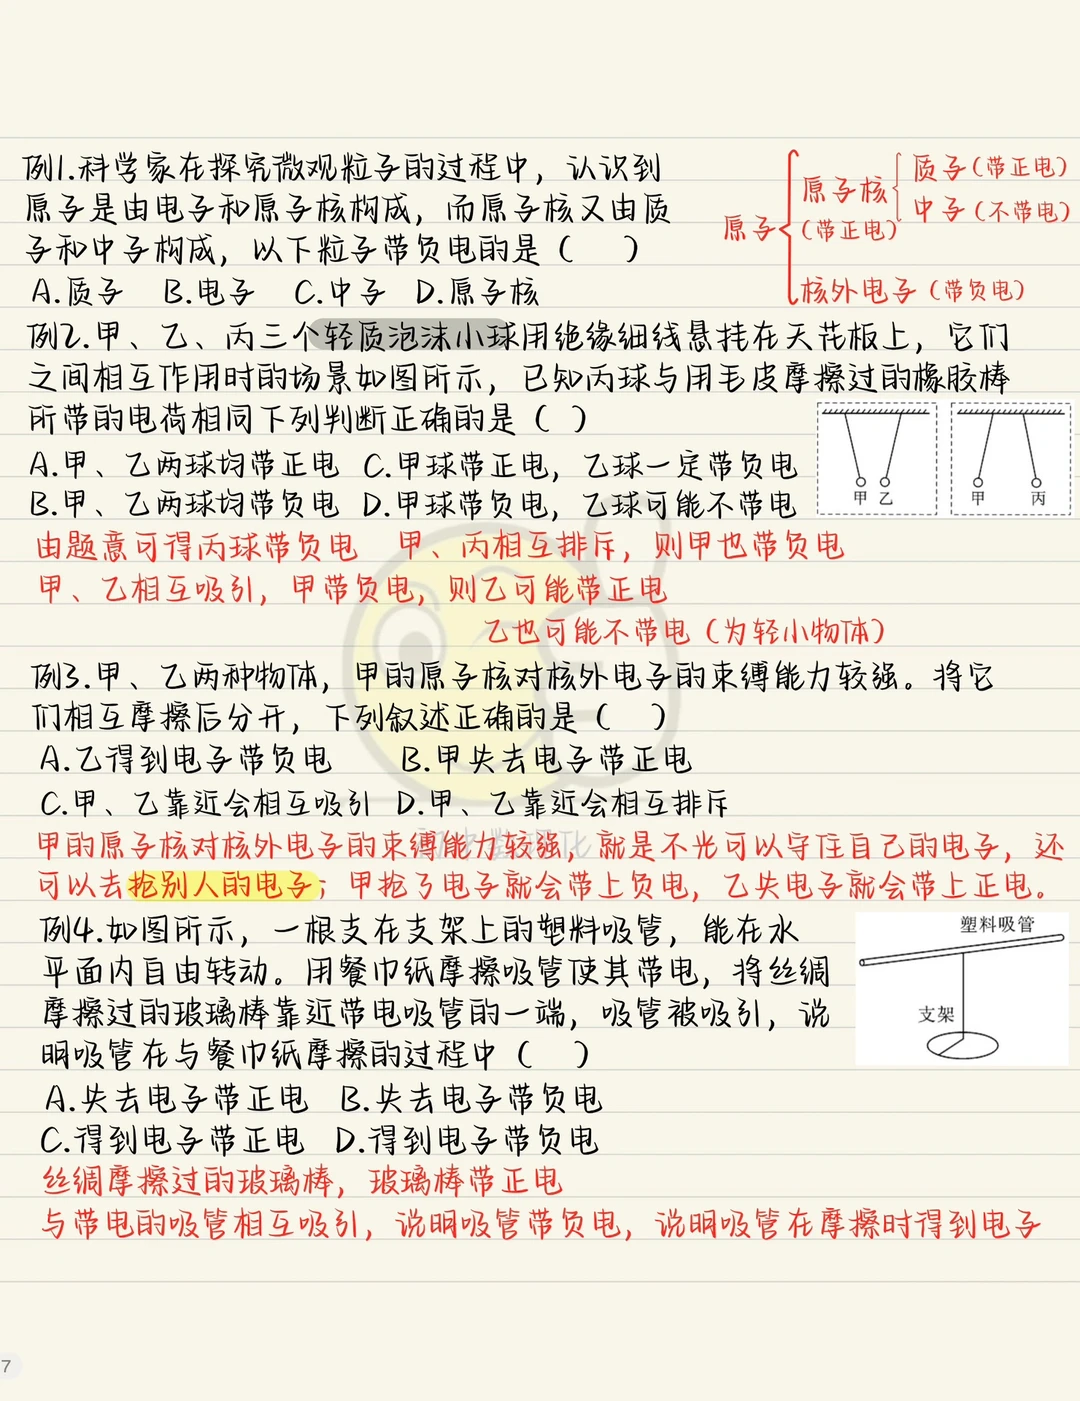 例1.科学家在探究微观粒子的过程中，认识到
原子是由电子和原子核构成，而原子核又由质
子和中子构成，以下粒子带负电的是（　）
A.质子　B.电子　C.中子　D.原子核
原子
原子核
（带正电）
质子（带正电）
中子（不带电）
核外电子（带负电）
例2.甲、乙、丙三个轻质泡沫小球用绝缘细线悬挂在天花板上，它们
之间相互作用时的场景如图所示，已知丙球与用毛皮摩擦过的橡胶棒
所带的电荷相同下列判断正确的是（　）
A.甲、乙两球均带正电　C.甲球带正电，乙球一定带负电
B.甲、乙两球均带负电　D.甲球带负电，乙球可能不带电
甲 乙
甲 丙
由题意可得丙球带负电　甲、丙相互排斥，则甲也带负电
甲、乙相互吸引，甲带负电，则乙可能带正电
乙也可能不带电（为轻小物体）
例3.甲、乙两种物体，甲的原子核对核外电子的束缚能力较强。将它
们相互摩擦后分开，下列叙述正确的是（　）
A.乙得到电子带负电　B.甲失去电子带正电
C.甲、乙靠近会相互吸引　D.甲、乙靠近会相互排斥
甲的原子核对核外电子的束缚能力较强，就是不光可以守住自己的电子，还
可以去抢别人的电子；甲抢了电子就会带上负电，乙失电子就会带上正电。
例4.如图所示，一根支在支架上的塑料吸管，能在水
平面内自由转动。用餐巾纸摩擦吸管使其带电，将丝绸
摩擦过的玻璃棒靠近带电吸管的一端，吸管被吸引，说
明吸管在与餐巾纸摩擦的过程中（　）
塑料吸管
支架
A.失去电子带正电　B.失去电子带负电
C.得到电子带正电　D.得到电子带负电
丝绸摩擦过的玻璃棒，玻璃棒带正电
与带电的吸管相互吸引，说明吸管带负电，说明吸管在摩擦时得到电子
7